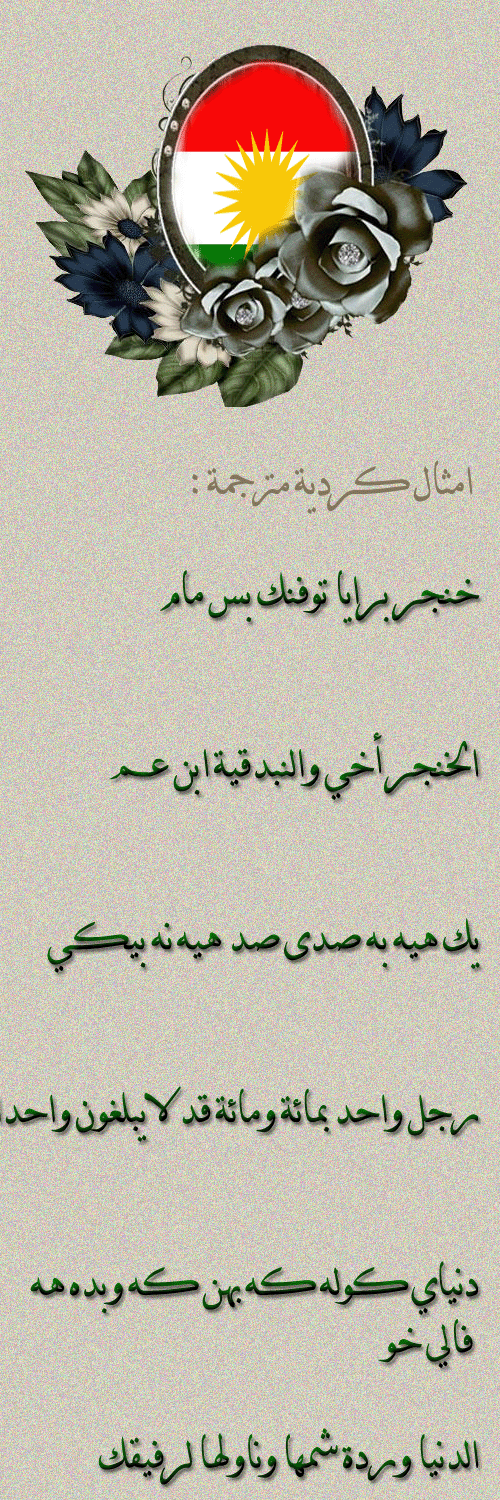 امثال كردية مترجمة :
خنجر برايا توفنك بس مام
الخنجر أخي والنبدقية ابن عم
يك هيه به صدى صد هيه نه بيكي
رجل واحد بمائة ومائة قد لايبلغون واحدا
دنياي كوله كه بهن كه وبده هه
فالي خو
الدنيا وردة شمها وناولها لرفيقك